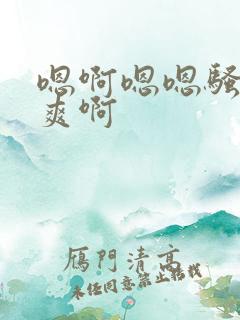 嗯啊嗯嗯骚
爽啊
雁門清高
未经同意禁止转载